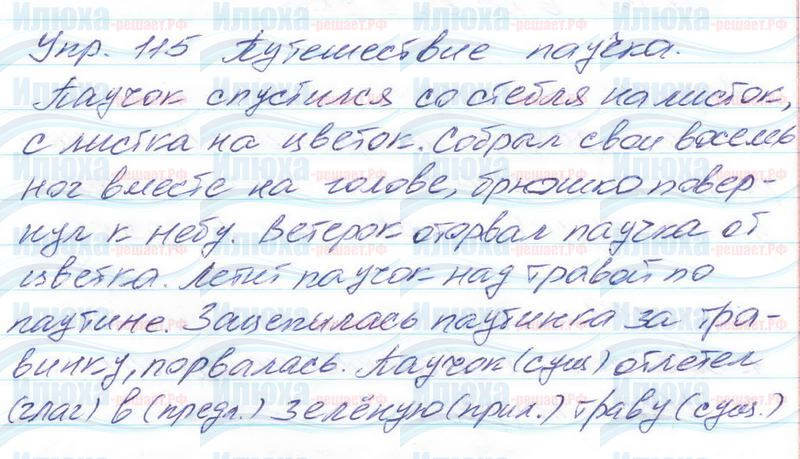 Упр. 115 Путешествие паучка.
Паучок спустился со стебля на листок,
с листка на цветок. Собрал свои восемь
ног вместе на голове, брюшко повер-
нул к небу. Ветерок оторвал паучка от
цветка. Летит паучок над травой по
паутине. Зацепилась паутинка за тра-
винку, порвалась. Паучок (сущ) отлетел
(глаг) в (предл.) зелёную (прил.) траву (сущ.)